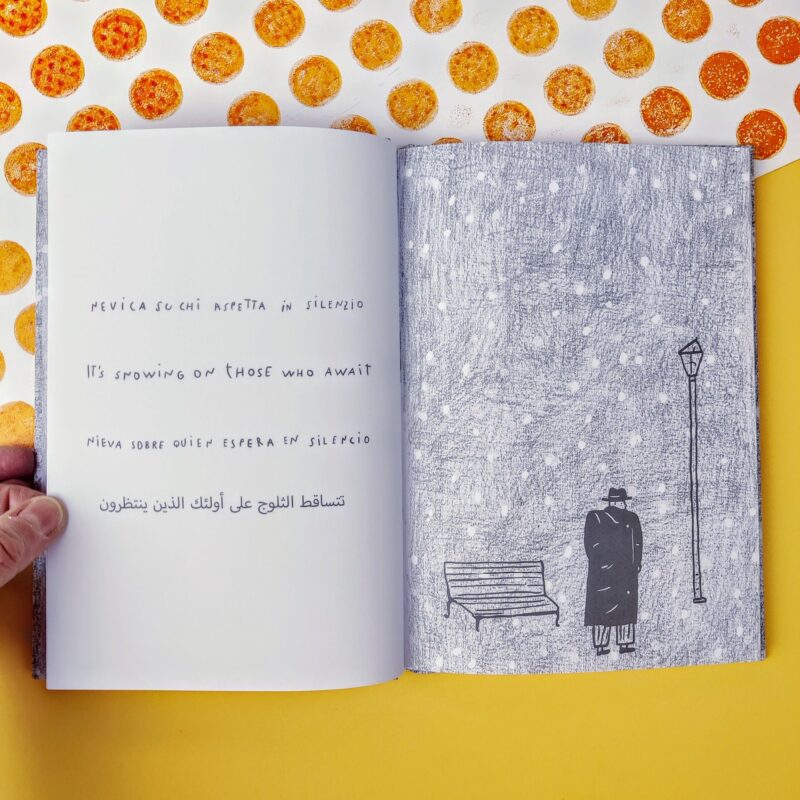 NEVICA SU CHI ASPETTA IN SILENZIO
IT'S SNOWING ON THOSE WHO AWAIT
NIEVA SOBRE QUIEN ESPERA EN SILENCIO
تتساقط الثلوج على أولئك الذين ينتظرون